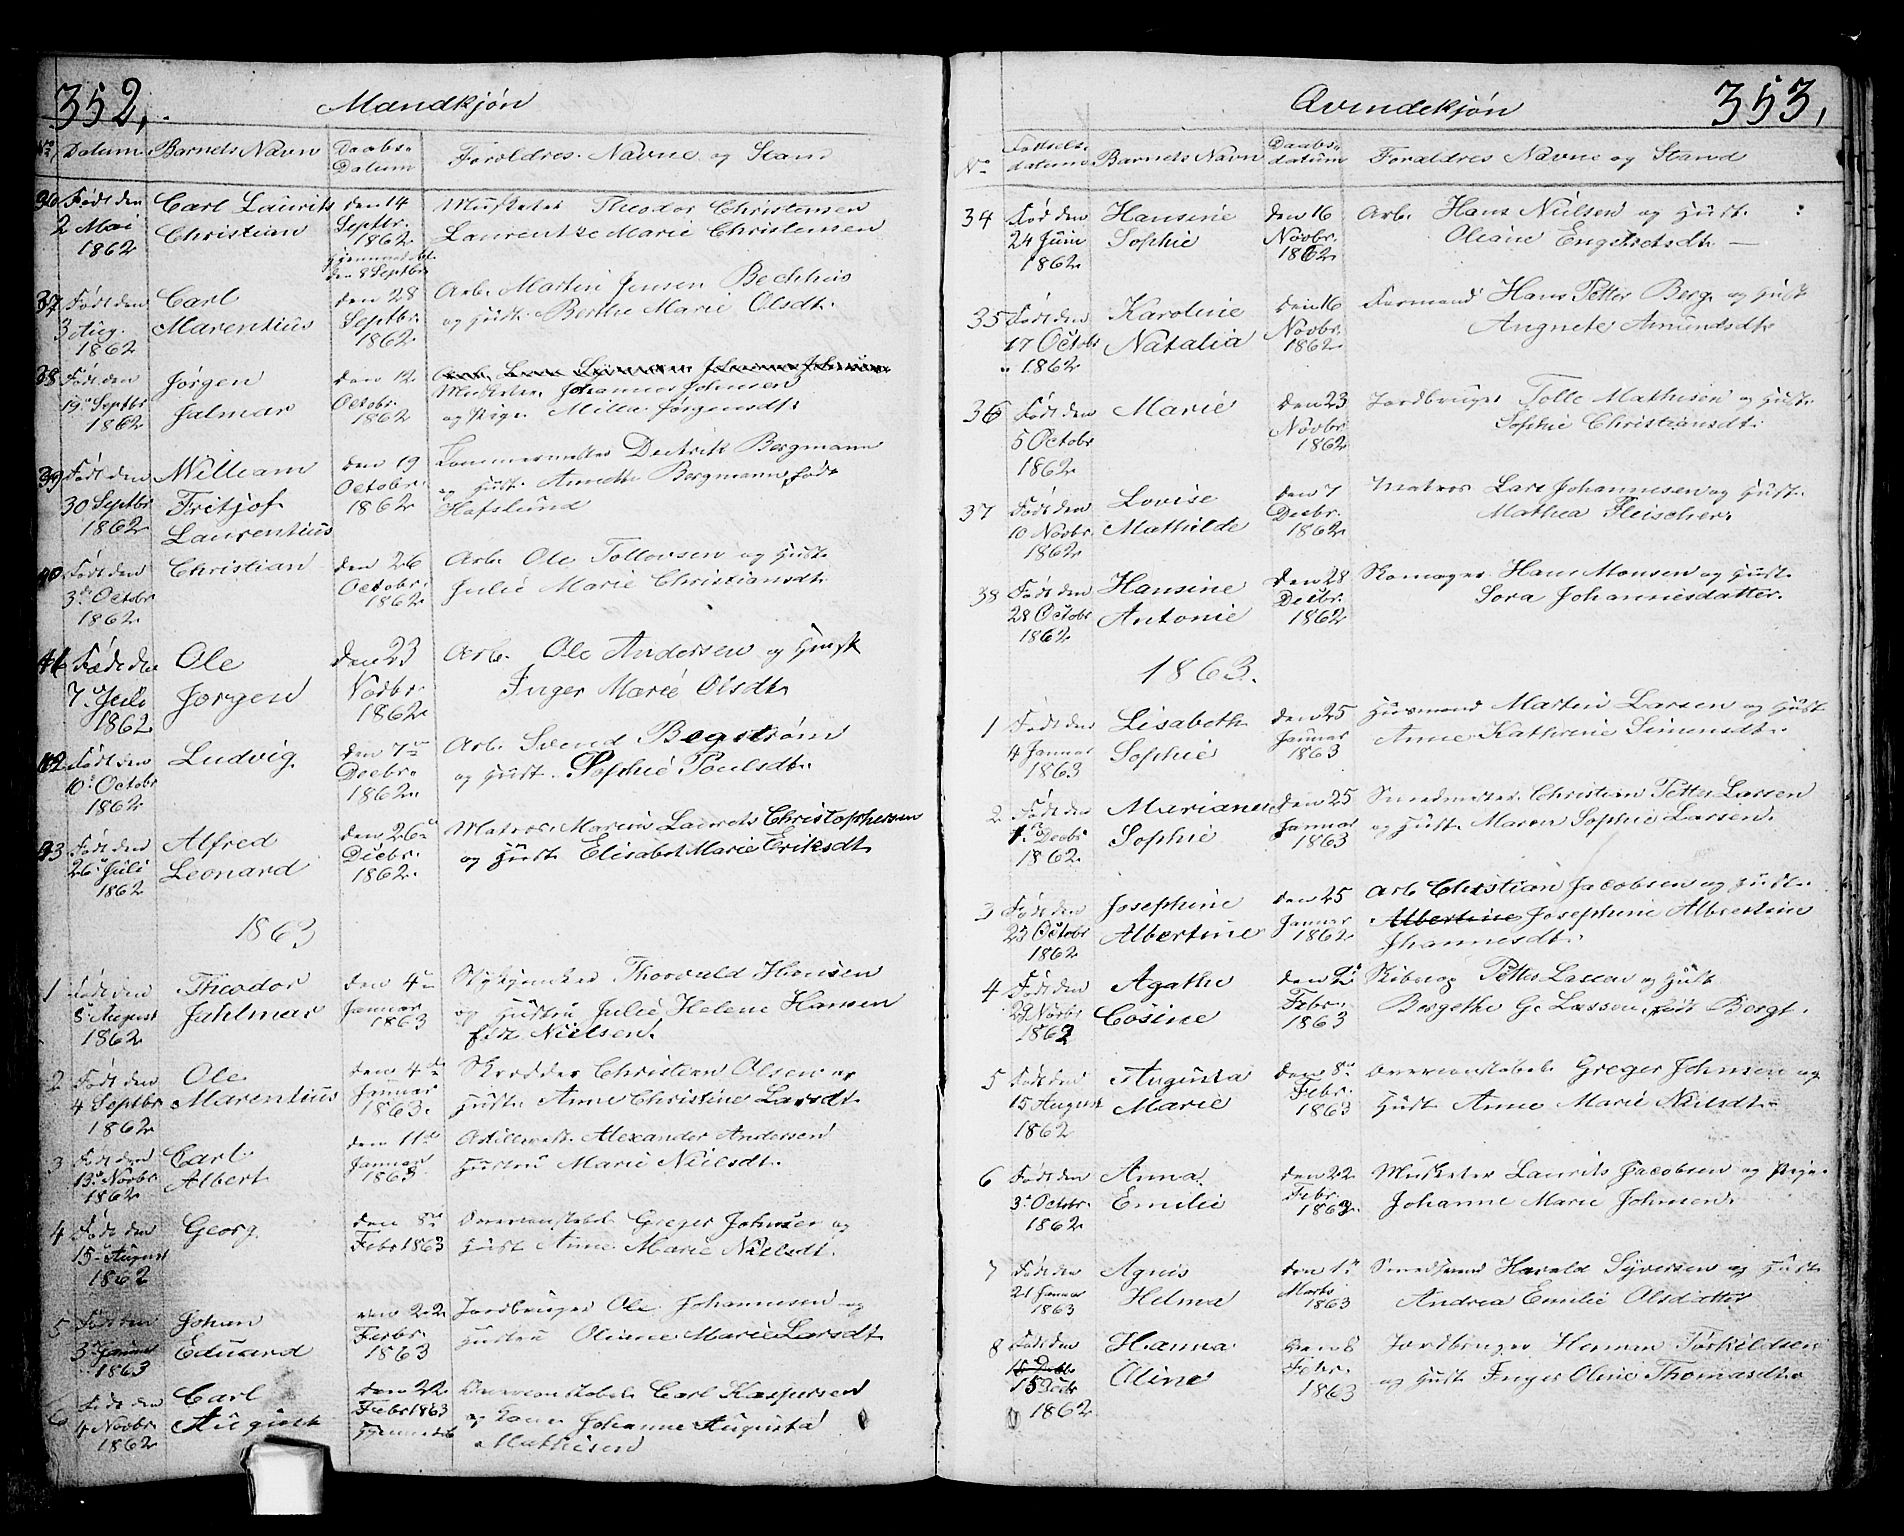 352.
Mandkjön
No Datum Barnets Navn Daabs- Datum Foroldres Navne og Stand
36 Födt den 2 Mai 1862 Carl Laurits Christian den 14 Septbr. 1862 Musketer Theodor Christensen
Laurentze Marie Christensen
den 8 Septbr
37 Födt den 3 Aug. 1862 Carl Marentius den 28 Septbr. 1862 Arb. Martin Jensen Bechhus
og Hust. Berthe Marie Olsdt.
38 Födt den 19. Septbr 1862 Jörgen Jalmar den 12 Octobr. 1862
Musketer Johannes Johnsen
og Pige Milla Jörgensdt.
39 Födt den 30 Septbr 1862 William Fritjof Laurentius den 19 Octobr. 1862 Tömmermester Diedrik Bergmann
og Hust. Annette Bergmann, föd
Hafslund
40 Födt den 3 Octobr 1862 Christian den 26 Octobr. 1862 Arb. Ole Tollovsen og Hust.
Julie Marie Christiansdt.
41 Födt den 7. Juli 1862 Ole Jörgen den 23 Novbr. 1862 Arb. Ole Andersen og Hust
Inger Marie Olsdt.
42 Födt den 10. Octobr 1862 Ludvig den 7 Decbr. 1862 Arb. Svend Begström
og Hust. Sophie Poulsdt.
43 Födt den 26 Juli 1862 Alfred Leonard den 26 Decbr. 1862 Matros Laurits Christophersen
og Hust. Elisabet Marie Eriksdt.
1863
1 Födt den 8 August 1862 Theodor Jahlmar den 4 Januar 1863 Thorvald Hansen
og Hustru Julie Helene Hansen
föd Nielsen.
2 Födt den 4 Septbr 1862 Ole Marentius den 4de Januar 1863. Skrædder Christian Olsen og
Hust. Anne Christine Larsdt.
3 Födt den 13 Novbr 1862 Carl Albert den 11te Januar 1863 Alexander Andersen
Hustru Marie Nielsdt.
4 Födt den 15 August 1862 Georg den 8de Febr 1863 Overconstabel Greger Johnsen og
Hust. Anne Marie Nielsdt.
5 Födt den 3 Januar 1863 Johan Eduard den 22 Febr. 1863 Jordbruger Ole Johannesen og
Hustru Oline Marie Larsdt.
6 Födt den 4 Novbr. 1862 Carl August den 22 Febr 1863 Overconstabel Carl Kaspersen
og Kone Johanne Augusta
Mathisen
353.
Qvindekjön
No Födsels- datum Barnets Navn Daabs- datum Foraldres Navne og Stand
34 Föd den 24 Juni 1862 Hansine Sophie den 16 Novbr. 1862 Arb. Hans Nielsen og Hust.
Oliane Engebretsdt.
35 Födt den 17 Octobr 1862 Karoline Natalia den 16 Novbr. 1862 Formand Hans Petter Berg og Hust
Angnete Amundsdt.
36 Födt den 5 Octobr 1862 Marie den 23 Novbr. 1862 Jordbruger Tolle Mathisen og Hust.
Sophie Christiansdt.
37 Födt den 10 Novbr. 1862 Lovise Mathilde den 7 Decbr. 1862 Matros Lars Johannesen og Hust.
Mathea Fleischer.
38 Födt den 28 Octobr 1862 Hansine Antonie den 28 Decbr. 1862 Skomager Hans Monsen og Hust.
Sora Johannesdatter.
1863.
1 Födt den 4 Januar 1863 Lisabeth Sophie den 25 Januar 1863 Husmand Martin Larsen og Hust
Anne Kathrine Simensdt.
2 Födt den 1. Decbr 1862 Mariane Sophie den 25 Januar 1863 Smedmester Christian Petter Larsen
og Hust. Maren Sophie Larsen.
3 Födt den 23 Octobr 1862 Josephine Albertine den 25 Januar 1862 Arb Christian Jacobsen og Hust.
Albertine Josephine Albertine
Jhannesdt.
4 Födt den Novbr 1862 Agathe Cosine den Febr. 1863 Petter Lassen og Hust
Bergethe G. Lassen, född Borgt.
5 Födt den 15 August 1862 Augusta Marie den 8 Febr. 1863 Overconstabel Greger Johnsen og
Hust Anne Marie Nielsdt.
6 Födt den 3. Octobr. 1862 Anna Emilie den 22 Febr. 1863. Musketer Laurits Jacobsen og Pige
Johanne Marie Johnsen.
7 Födt den 21 Januar 1863 Agnis Helma den 1 Marts 1863 Smedsvend Harald Syversen og Hust
Andrea Emilie Olsdatter
8 Födt den 15 Decbr 1862 Hanna Oline den 8 Febr. 1863 Jordbruger Herman Torkildsen
og Hust Inger Oline Thomasdt.